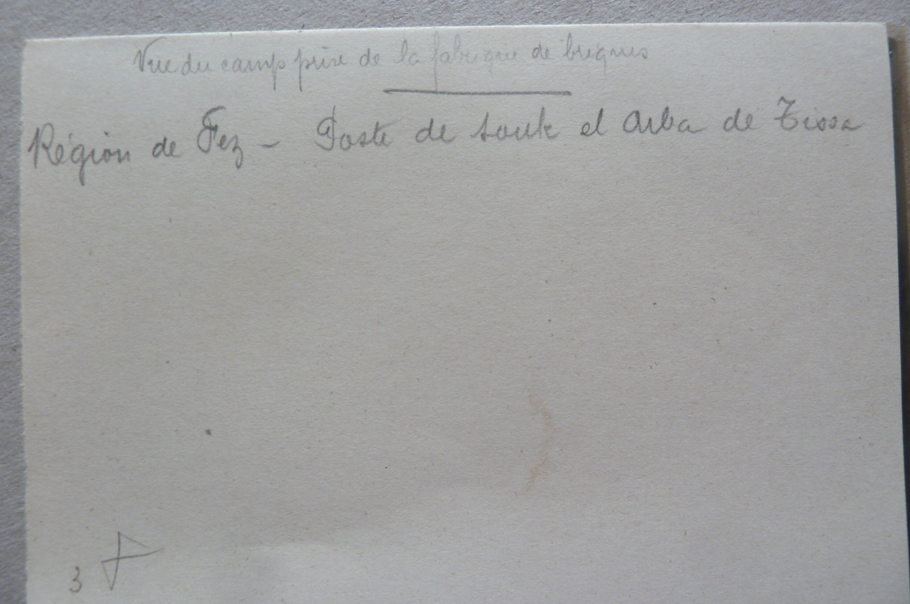 Vue du camp prise de la fabrique de briques
Région de Fez - Poste de Souk el Arba de Tissa
3